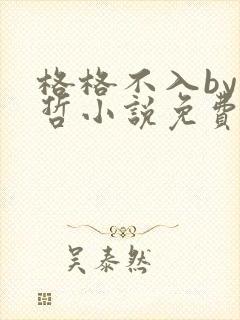 格格不入by
哲小說免費
吴泰然